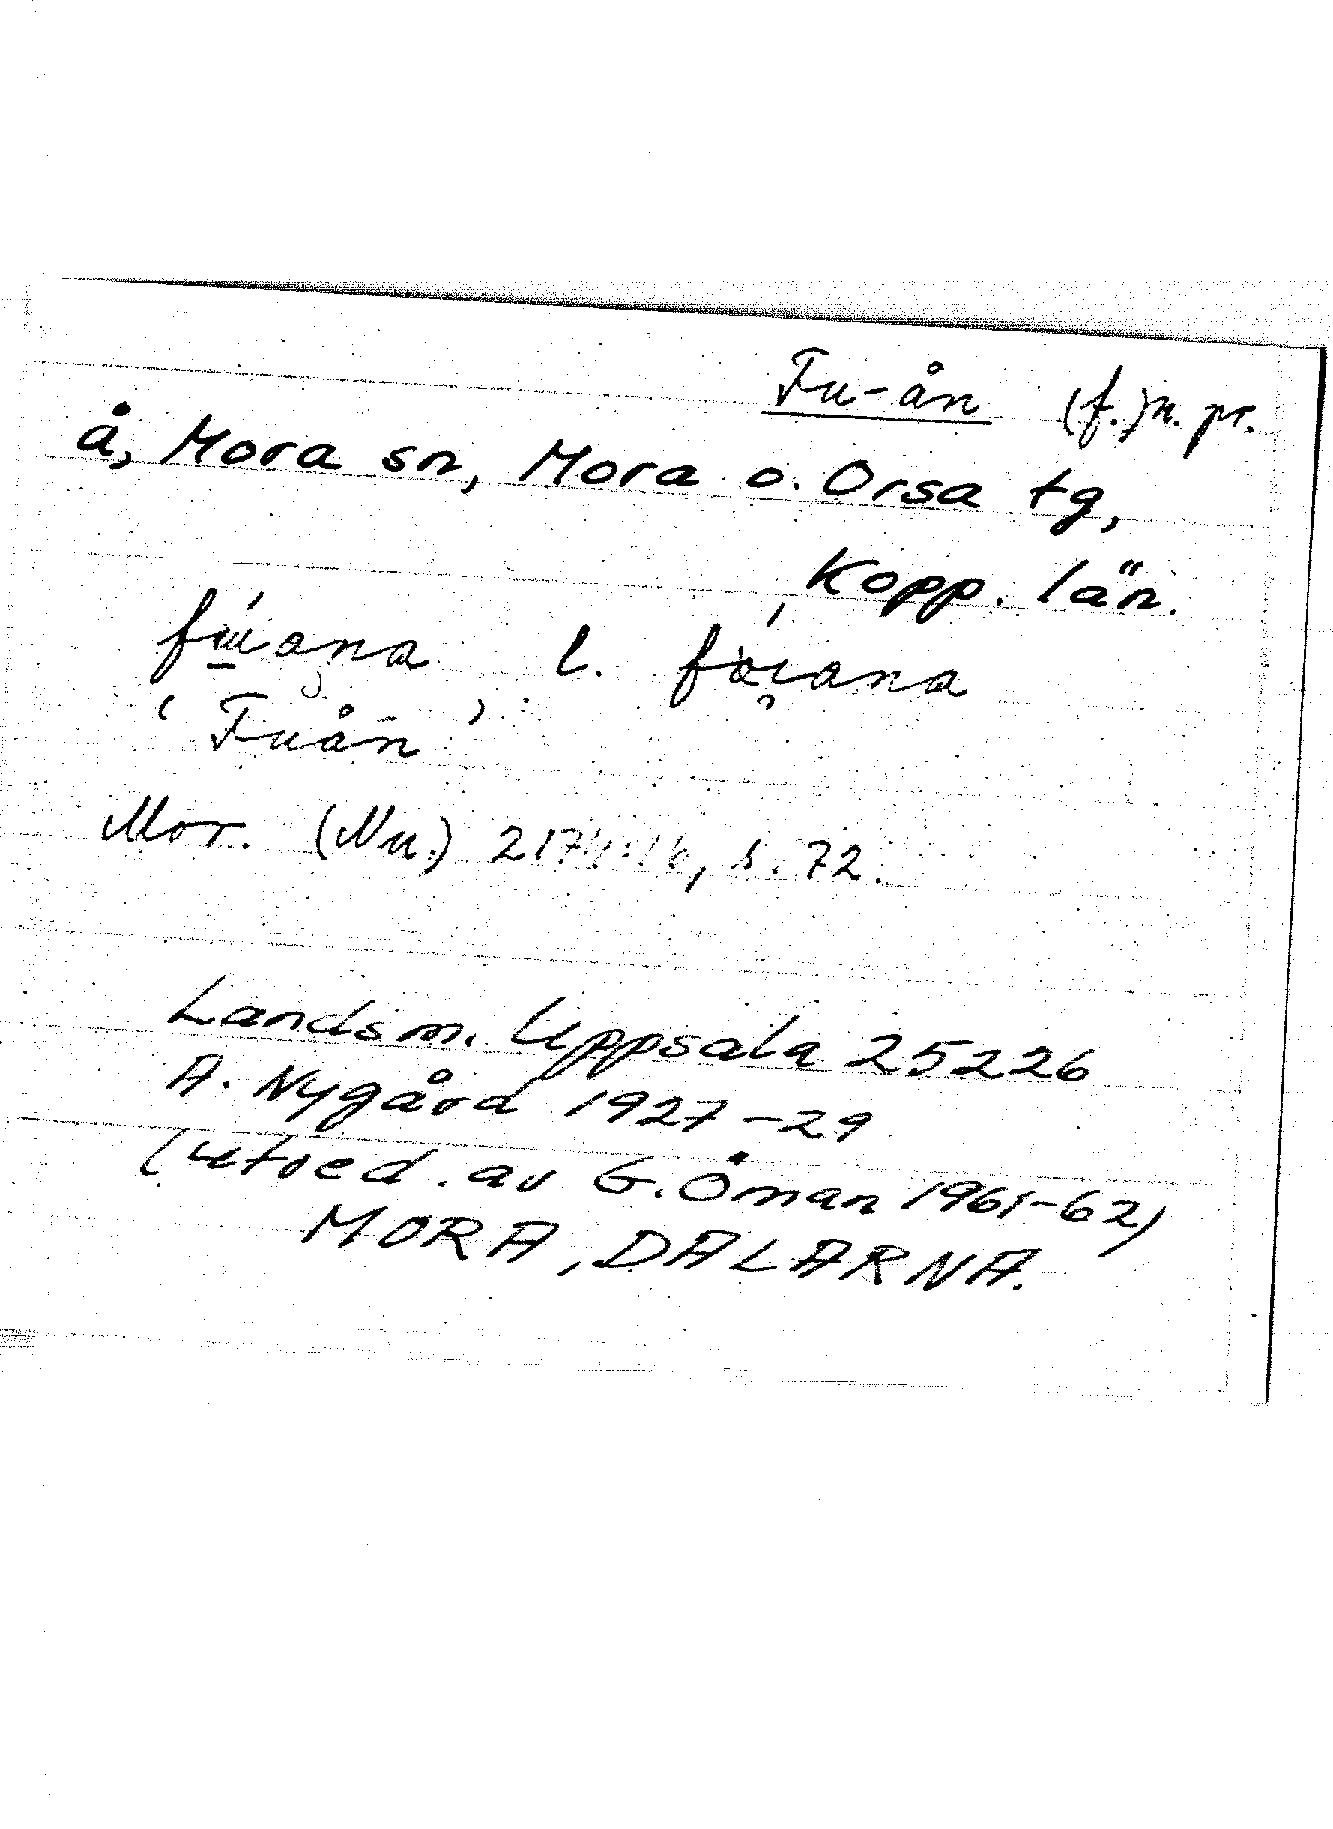 Fu-ån (f.) n. pr.
å, Mora sn, Mora o. Orsa tg,
Kopp. län.
l.
‘Fuån’
Mor. (Nu.) s. 72.
Landsm. Uppsala 25226
A. Nygård 1927-29
(utred. av G. Öman 1961-62)
MORA, DALARNA.